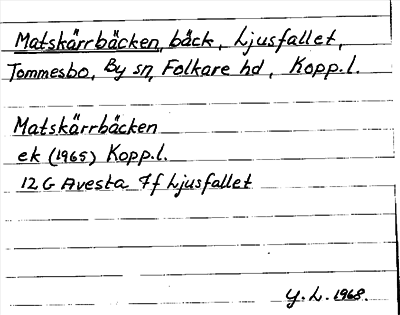 Matskärrbäcken, bäck, Ljusfallet,
Tommesbo, By sn, Folkare hd, Kopp.l.
Matskärrbäcken
ek (1965) Kopp.l.
12 G Avesta 7f Ljusfallet
Y. L. 1968.